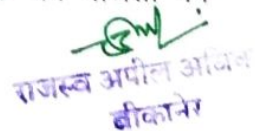 राजस्व अपील अधिक
बीकानेर